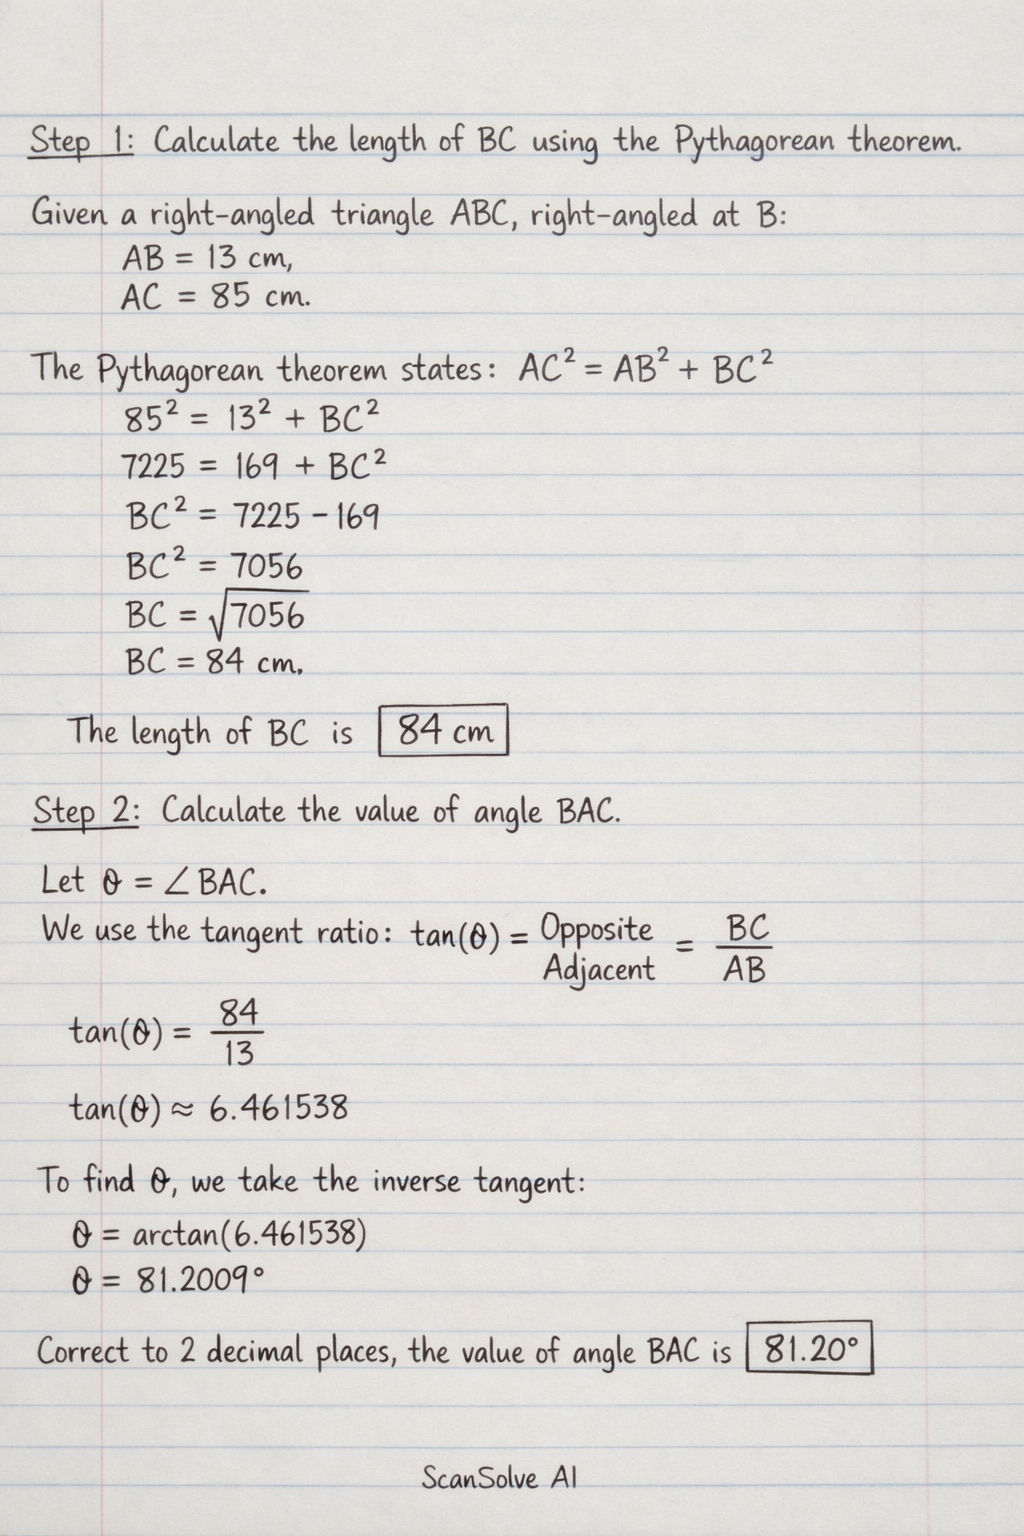 Step 1: Calculate the length of BC using the Pythagorean theorem.
Given a right-angled triangle ABC, right-angled at B:
AB = 13 cm,
AC = 85 cm.
The Pythagorean theorem states: AC² = AB² + BC²
85² = 13² + BC²
7225 = 169 + BC²
BC² = 7225 - 169
BC² = 7056
BC = √7056
BC = 84 cm.
The length of BC is 84 cm
Step 2: Calculate the value of angle BAC.
Let θ = ∠BAC.
We use the tangent ratio: tan(θ) = Opposite Adjacent = BC/AB
tan(θ) = 84/13
tan(θ) ≈ 6.461538
To find θ, we take the inverse tangent:
θ = arctan(6.461538)
θ = 81.2009°
Correct to 2 decimal places, the value of angle BAC is 81.20°
ScanSolve AI